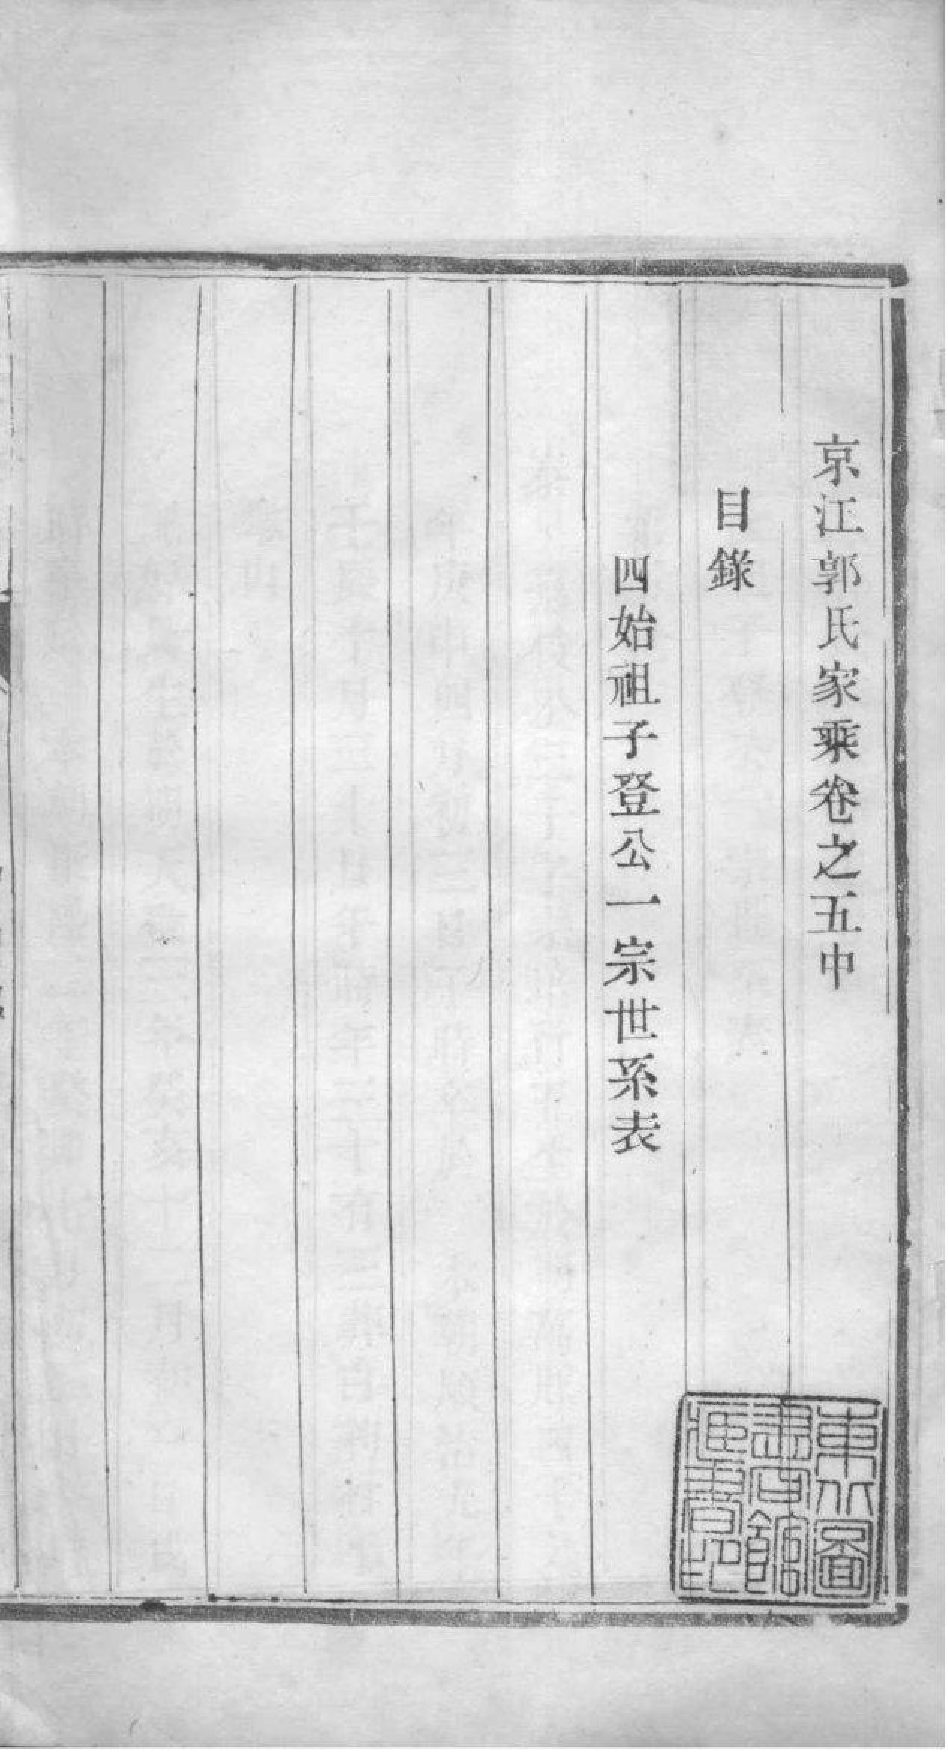 京江郭氏家乘卷之五中
目錄
四始祖子登公一宗世系表
東北圖
書館
藏書印